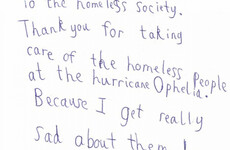 To the homeless society.
Thank you for taking
care of the homeless people
at the hurricane Ophelia.
Because I get really
sad about them!